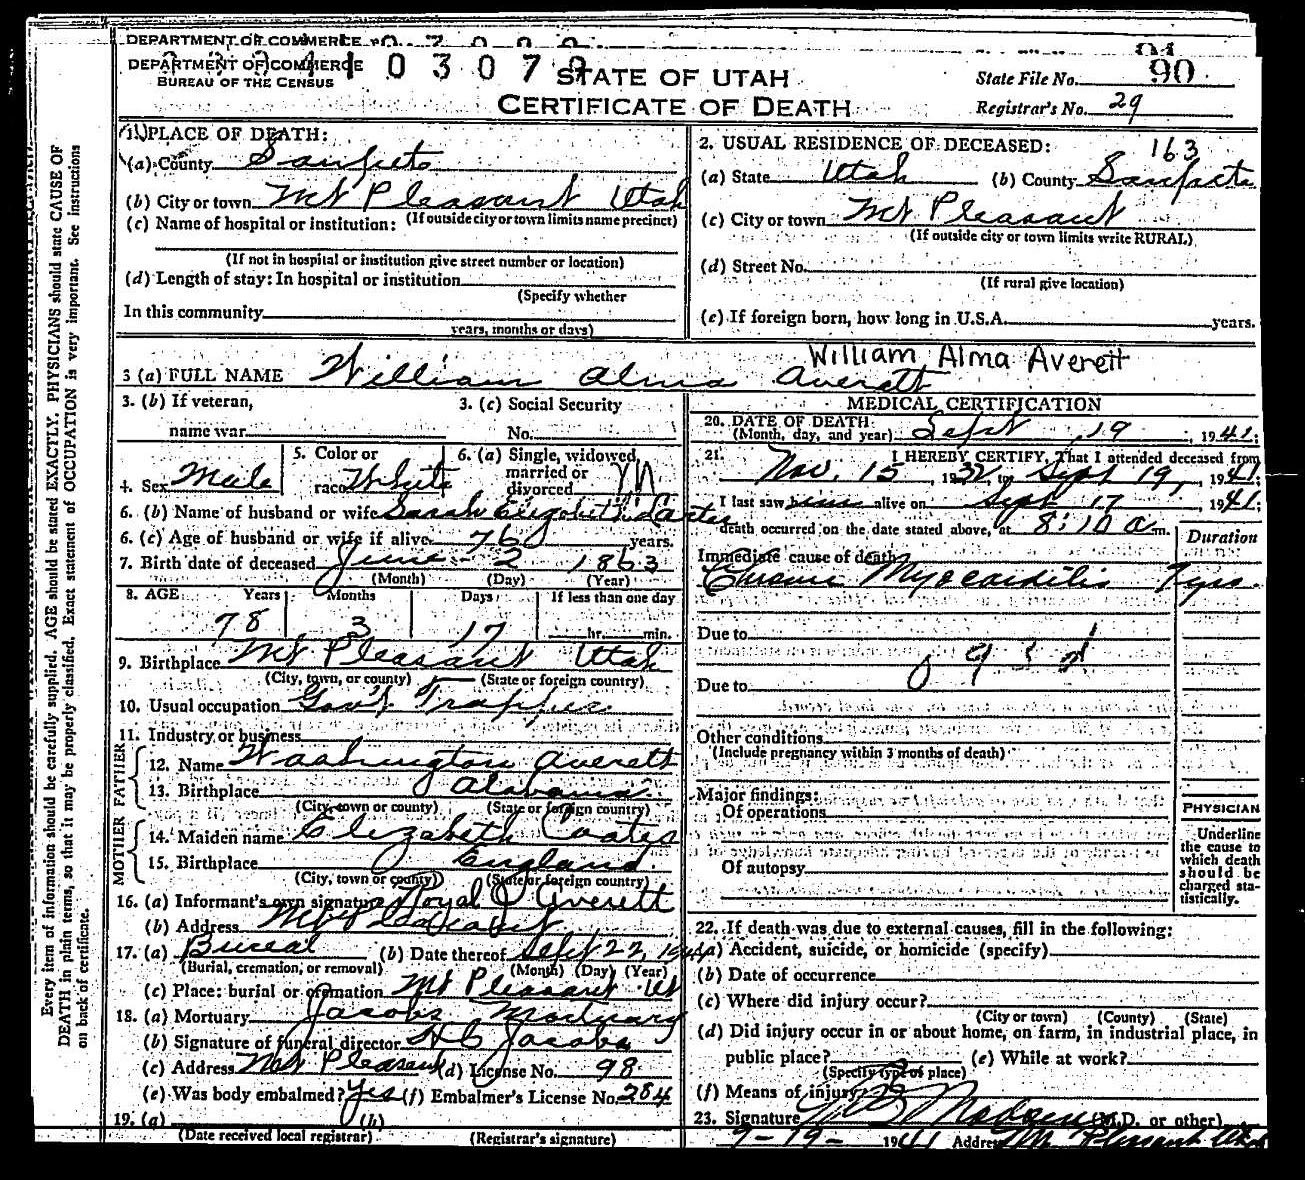 DEPARTMENT OF COMMERCE
DEPARTMENT OF COMMERCE
BUREAU OF THE CENSUS
0 3 0 7 0
STATE OF UTAH
CERTIFICATE OF DEATH
State File No. 90
Registrar's No. 29
Every item of information should be carefully supplied. AGE should be stated EXACTLY. PHYSICIANS should state CAUSE OF
DEATH in plain terms, so that it may be properly classified. Exact statement of OCCUPATION is very important. See instructions
on back of certificate.
1. PLACE OF DEATH:
(a) County Sanpete
(b) City or town Mt Pleasant Utah
(If outside city or town limits name precinct)
(c) Name of hospital or institution:
(If not in hospital or institution give street number or location)
(d) Length of stay: In hospital or institution
(Specify whether
In this community
years, months or days)
2. USUAL RESIDENCE OF DECEASED: 163
(a) State Utah (b) County Sanpete
(c) City or town Mt Pleasant
(If outside city or town limits write RURAL)
(d) Street No.
(If rural give location)
(e) If foreign born, how long in U.S.A. years.
William Alma Averett
3 (a) FULL NAME William Alma Averett
3. (b) If veteran,
name war
3. (c) Social Security
No.
4. Sex Male
5. Color or
race White
6. (a) Single, widowed,
married or
divorced M
6. (b) Name of husband or wife Sarah Elizabeth Carter
6. (c) Age of husband or wife if alive 76 years.
7. Birth date of deceased June 2 1863
(Month) (Day) (Year)
8. AGE Years Months Days If less than one day
78 3 17 hr. min.
9. Birthplace Mt Pleasant Utah
(City, town, or county) (State or foreign country)
10. Usual occupation Gov't Trapper
11. Industry or business
FATHER
12. Name Washington Averett
13. Birthplace Alabama
(City, town or county) (State or foreign country)
MOTHER
14. Maiden name Elizabeth Coates
15. Birthplace England
(City, town or county) (State or foreign country)
16. (a) Informant's own signature Royal J Averett
(b) Address Mt Pleasant
17. (a) Bureal (b) Date thereof Sept 22, 1941
(Burial, cremation, or removal) (Month) (Day) (Year)
(c) Place: burial or cremation Mt Pleasant Ut
18. (a) Mortuary Jacobs Mortuary
(b) Signature of funeral director H C Jacobs
(c) Address Mt Pleasant (d) License No. 98
(e) Was body embalmed? Yes (f) Embalmer's License No. 284
19. (a) (b)
(Date received local registrar) (Registrar's signature)
MEDICAL CERTIFICATION
20. DATE OF DEATH
(Month, day, and year) Sept 19, 1941;
21. I HEREBY CERTIFY, That I attended deceased from
Nov. 15, 1932, to Sept 19, 1941;
I last saw him alive on Sept 17 1941;
death occurred on the date stated above, at 8:10 a m.
Duration
Immediate cause of death
Chronic Myocarditis 7 yrs.
Due to
93d
Due to
Other conditions
(Include pregnancy within 3 months of death)
Major findings:
Of operations
Of autopsy
PHYSICIAN
Underline
the cause to
which death
should be
charged sta-
tistically.
22. If death was due to external causes, fill in the following:
(a) Accident, suicide, or homicide (specify)
(b) Date of occurrence
(c) Where did injury occur?
(City or town) (County) (State)
(d) Did injury occur in or about home, on farm, in industrial place, in
public place? (e) While at work?
(Specify type of place)
(f) Means of injury
23. Signature Madsen (M.D. or other)
9-19- 1941 Address Mt Pleasant Utah